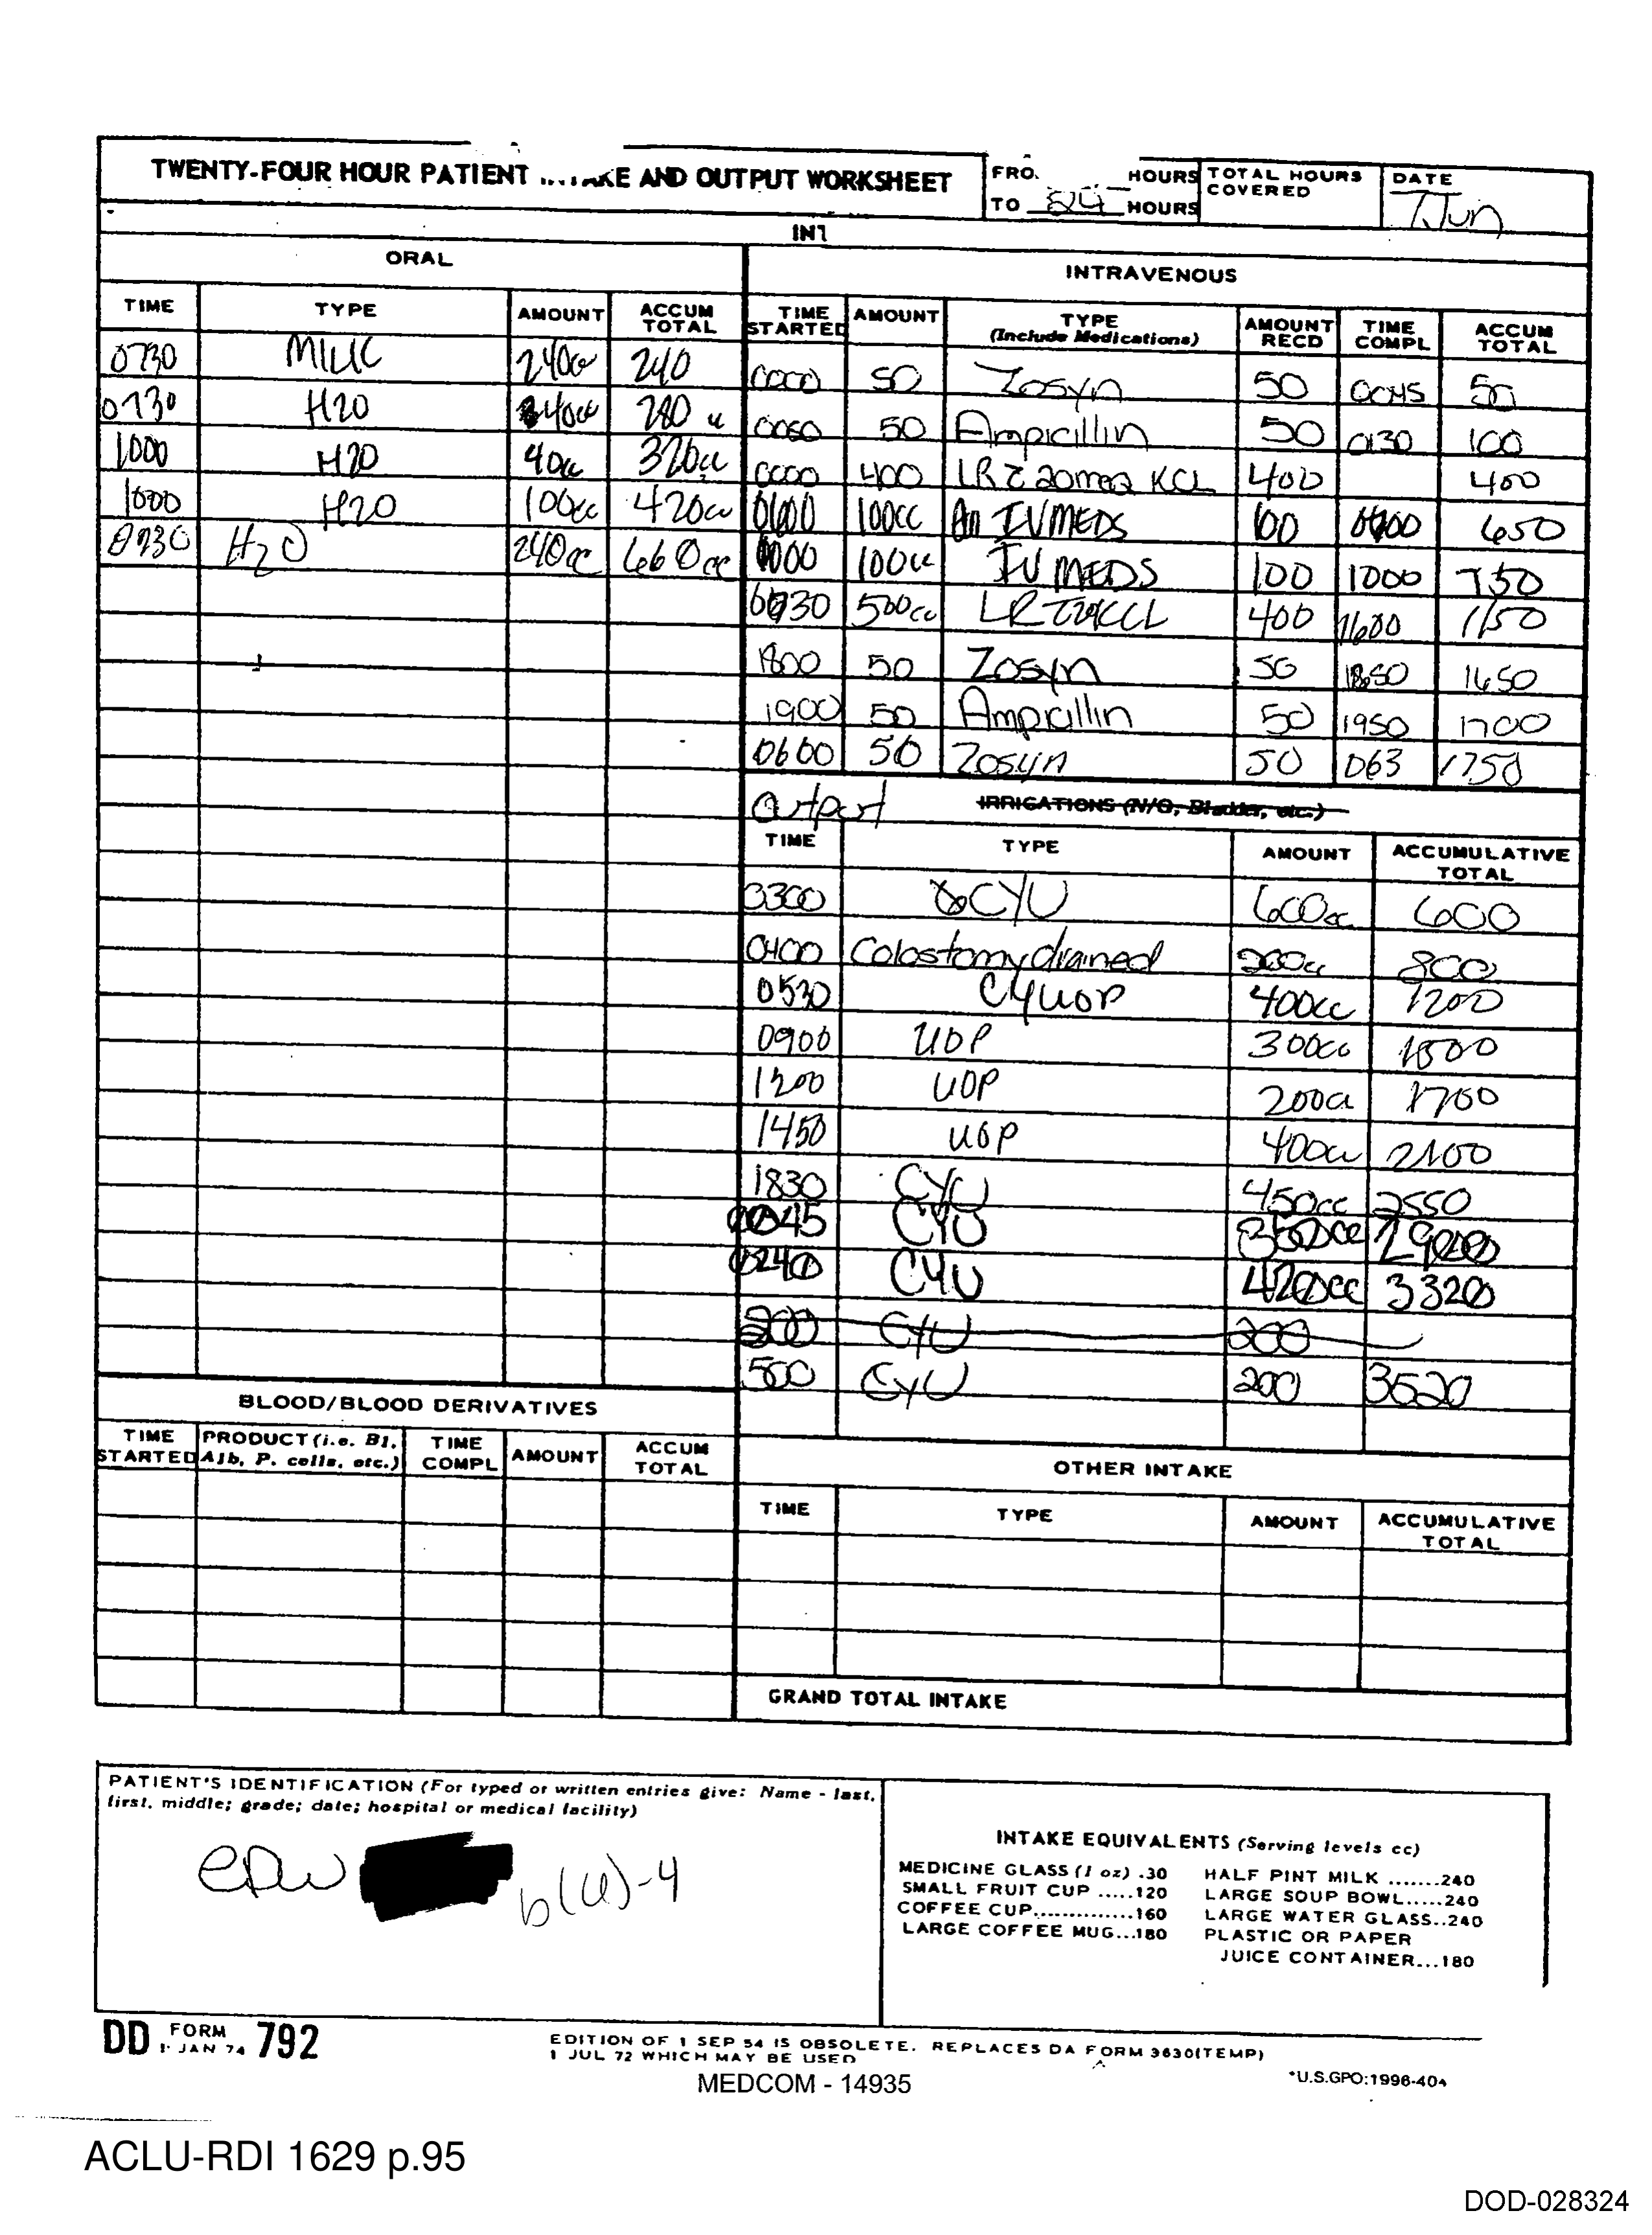 TWENTY-FOUR HOUR PATIENT INTAKE AND OUTPUT WORKSHEET
FRO. HOURS
TO 24 HOURS
TOTAL HOURS COVERED
DATE
7 Jun
INT
ORAL
TIME TYPE AMOUNT ACCUM TOTAL
0730 MILK 240cc 240
0730 H20 40cc 280
1000 H20 40cc 320cc
1000 H20 100cc 420cc
0930 H2O 240cc 660cc
INTRAVENOUS
TIME STARTED AMOUNT TYPE (Include Medications) AMOUNT RECD TIME COMPL ACCUM TOTAL
0000 50 Zosyn 50 0045 50
50 Ampicillin 50 0130 100
0000 400 LR c 20meq KCL 400 400
100cc IV MEDS 100 650
1000 100cc IV MEDS 100 1000 750
500cc LR c 20KCL 400 1600 1150
1800 50 Zosyn 50 1850 1650
1900 50 Ampicillin 50 1950 1700
0600 50 Zosyn 50 063 1750
Output IRRIGATIONS (N/G, Bladder, etc.)
TIME TYPE AMOUNT ACCUMULATIVE TOTAL
3300 CYU 600cc 600
0400 Colostomy drained 200cc 800
0530 CYUOP 400cc 1200
0900 UOP 300cc 1500
1200 UOP 200cc 1700
1450 UOP 400cc 2100
1830 CYU 450cc 2550
0045 CYU 350cc 2900
0240 CYU 420cc 3320
200 CYU 200
500 CYU 200 3520
BLOOD/BLOOD DERIVATIVES
TIME STARTED PRODUCT (i.e. Bl, Alb, P. cells, etc.) TIME COMPL AMOUNT ACCUM TOTAL
OTHER INTAKE
TIME TYPE AMOUNT ACCUMULATIVE TOTAL
GRAND TOTAL INTAKE
PATIENT'S IDENTIFICATION (For typed or written entries give: Name - last,
first, middle; grade; date; hospital or medical facility)
EPW b(6)-4
INTAKE EQUIVALENTS (Serving levels cc)
MEDICINE GLASS (1 oz) .30 HALF PINT MILK .......240
SMALL FRUIT CUP .....120 LARGE SOUP BOWL.....240
COFFEE CUP..............160 LARGE WATER GLASS..240
LARGE COFFEE MUG...180 PLASTIC OR PAPER
JUICE CONTAINER...180
DD FORM 1 JAN 74 792
EDITION OF 1 SEP 54 IS OBSOLETE. REPLACES DA FORM 3630(TEMP)
1 JUL 72 WHICH MAY BE USED
*U.S.GPO:1996-404
MEDCOM - 14935
ACLU-RDI 1629 p.95
DOD-028324